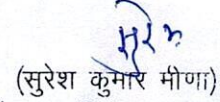 सुरेश
(सुरेश कुमार मीणा)